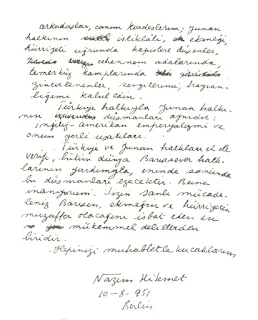 arkadaşları, canım kardeşlerim; Yunan
halkının istiklâli, ekmeği,
hürriyeti uğrunda hapislere düşenler,
cehennem adalarında,
temerküz kamplarında
zincirlenenler, sevgilerimi, hayran-
lığımı kabul edin.
Türkiye halkıyla Yunan halkı-
nın düşmanları aynıdır:
İngiliz-amerikan emperyalizmi ve
onun yerli uşakları.
Türkiye ve Yunan halkları el ele
verip, bütün dünya Barışsever halk-
larının yardımıyla, eninde sonunda
bu düşmanları ezecektir. Buna
inanıyorum. Sizin şanlı mücade-
leniz Barışın, ekmeğin ve hürriyetin
muzaffer olacağını isbat eden en
mükemmel delillerden
biridir.
Hepinizi muhabbetle kucaklarım
Nazım Hikmet
10-8-951
Berlin